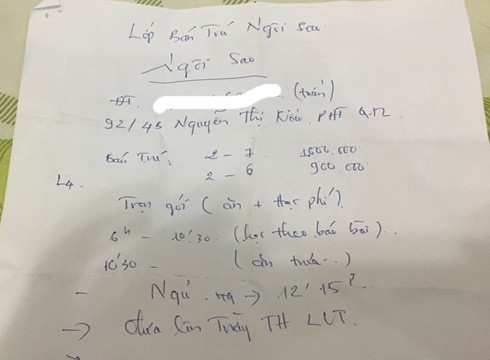 Lớp Bán Trú Ngôi Sao
Ngôi Sao
ĐT. (triển)
92/43 Nguyễn Thị Kiểu. PHT Q.12.
Bán Trú: 2 - 7 1800.000
2 - 6 900.000
L4.
Trọn gói (ăn + Học phí).
6h - 10'30 (học theo báo bài)..
10'30 - (ăn trưa..)
- Ngủ → 12' 15p..
→ đưa lên Trường TH LVT.